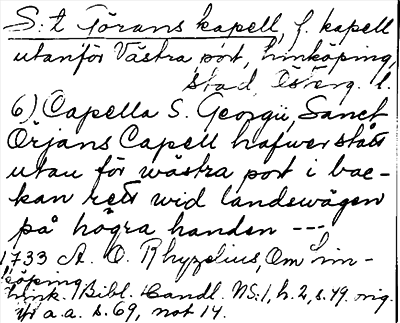 S:t Görans kapell, f. kapell
utanför Västra port, Linköping,
stad, Österg. l.
6) Capella S. Georgii, Sanct
Örjans Capell hafwer stått
utan för wästra port i bac-
kan rett wid landswägen
på högra handen ---
1733 A. O. Rhyzelius, Om Lin-
köping
Link. Bibl. Handl. NS:1, h.2, s.49 orig.
a.a. s.69, not 14.